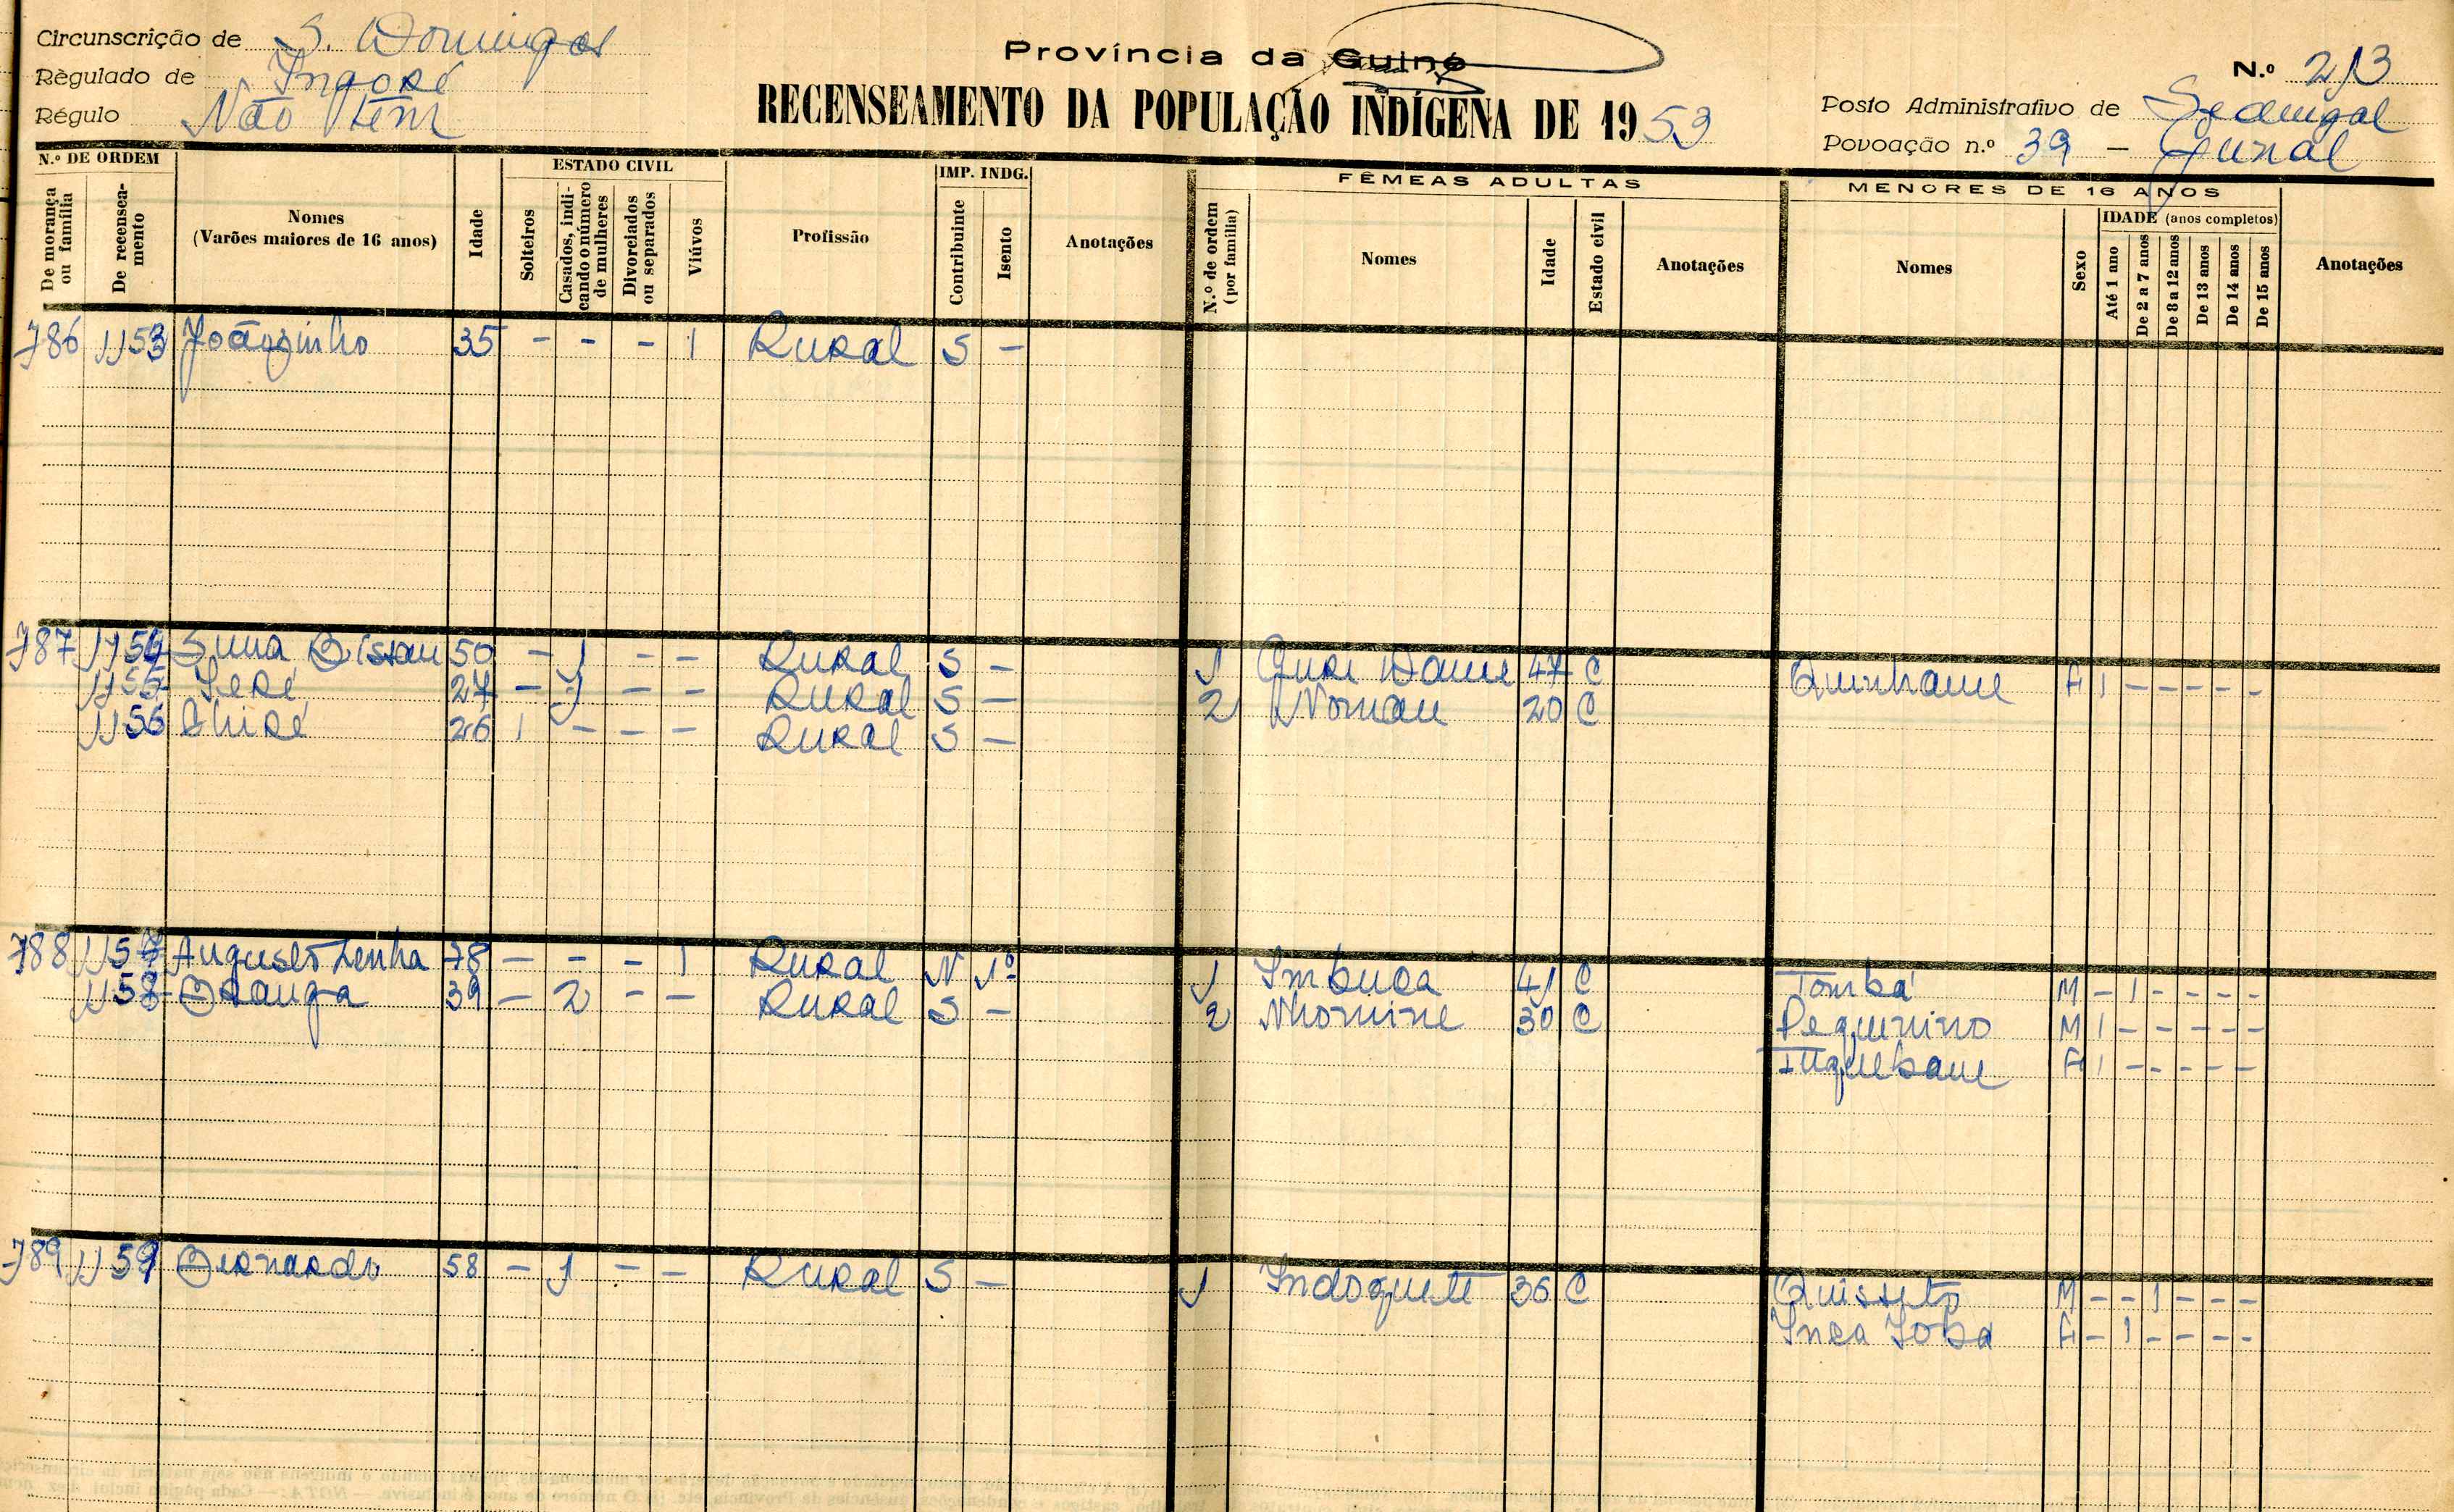 Circunscrição de S. Domingos
Regulado de Ingoré
Régulo Não tem
Província da Guiné
RECENSEAMENTO DA POPULAÇÃO INDÍGENA DE 1953
N.º 213
Posto Administrativo de Sedengal
Povoação n.º 39 -
N.º DE ORDEM
De morança ou família
De recensea-mento
Nomes (Varões maiores de 16 anos)
Idade
ESTADO CIVIL
Solteiros
Casados, indi-cando o número de mulheres
Divorciados ou separados
Viúvos
Profissão
IMP. INDG.
Contribuinte
Isento
Anotações
FÊMEAS ADULTAS
N.º de ordem (por família)
Nomes
Idade
Estado civil
Anotações
MENORES DE 16 ANOS
Nomes
Sexo
IDADE (anos completos)
Até 1 ano
De 2 a 7 anos
De 8 a 12 anos
De 13 anos
De 14 anos
De 15 anos
Anotações
786 1153 Joãozinho 35 - - - 1 Rural S -
787 1154 Suna Bissau 50 - 1 - - Rural S - 1 47 C Quinhame F 1 - - - - -
1155 Seré 27 - 1 - - Rural S - 2 Nomau 20 C
1156 Chiré 26 1 - - - Rural S -
788 1157 Augusto Lenha 78 - - - 1 Rural N 1º 1 Imbuca 41 C Tombá M - 1 - - - -
1158 Branga 39 - 2 - - Rural S - 2 Nhomine 30 C Pequenino M 1 - - - - -
F 1 - - - - -
789 1159 Bernardo 58 - 1 - - Rural S - 1 Indoquete 36 C Quisseto M - - 1 - - -
F - 1 - - - -